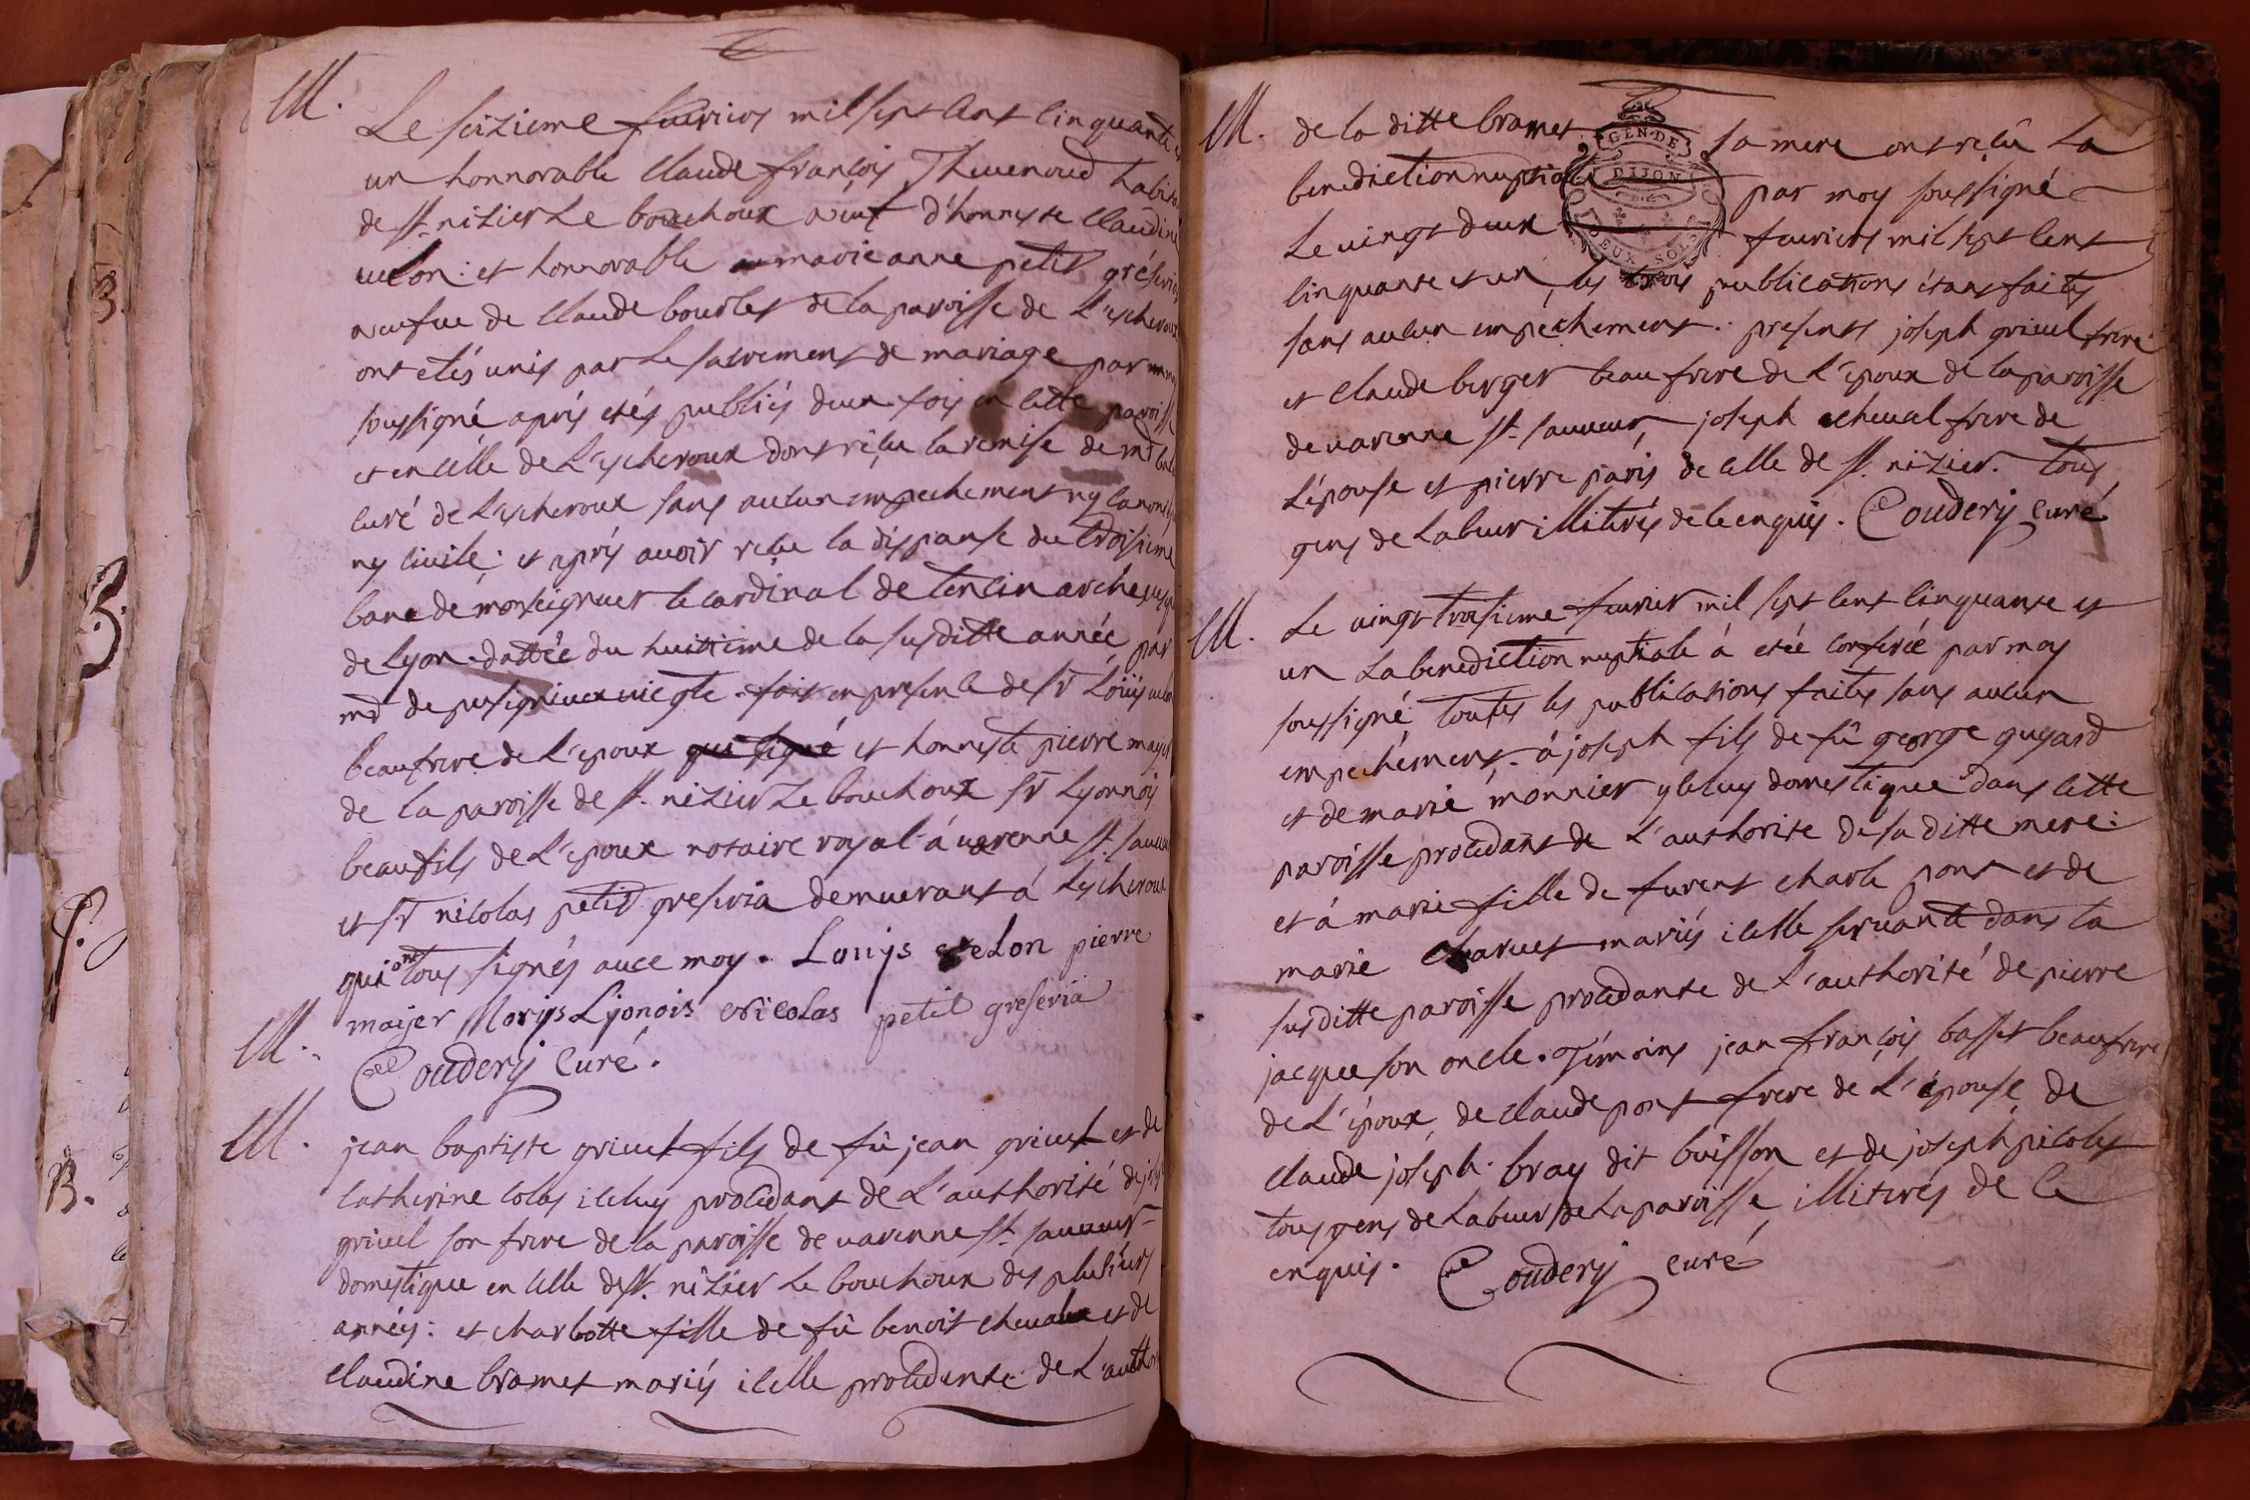 M.
Le seizieme fevrier mil sept cent cinquante et
un honnorable claude françois Thevenoud habita
de st. nizier le bouchoux veuf d'honneste claudine
velon: et honnorable marie anne petit gréseria
veufve de claude bourlet de la paroisse de L'escheroux
ont etés unis par le sacrement de mariage par moy
soussigné aprés etés publiés deux fois en cette paroisse
et en celle de L'escheroux dont reçu la remise de mr
curé de Lescheroux sans aucun empechement ny canoni
ny civile: et aprés avoir reçu la dispanse du troisieme
banc de monseigneur le cardinal de tencin archevesque
de Lyon dattée du huittieme de la susditte année par
mr de
fait en presence de sr Loüis velon
beaufrere de L'epoux qui signé et honneste pierre mayer
de la paroisse de st. nizier le bouchoux sr Lyonnois
beaufils de L'epoux notaire royal á varenne st. sauveur
et sr nicolas petit greseria demeurant á Lescheroux
qui ont tous signés avec moy. Louys velon pierre
M.
maijer Morijs Lyonois Nicolas petit greseria
Coudery Curé.
M.
jean baptiste grivel fils de fû jean grivel et de
catherine colas iceluy procedant de L'authorité de
grivel son frere de la paroisse de varenne st. sauveur
domestique en celle de st. nizier le bouchoux des plusieurs
années: et charlotte fille de fû benoit chevalx et de
claudine bramet mariés icelle procedente de L'autho
M.
de la ditte bramet sa mere ont reçû la
benediction nuptiale par moy soussigné
GEN. DE
DIJON
DEUX SOLS
Le vingt deux fevrier mil sept cent
cinquante et un, les trois publications étant faites
sans aucun empéchement. presents joseph grivel frere
et claude berger beaufrere de L'epoux de la paroisse
de varenne st. sauveur, joseph cheval frere de
L'épouse et pierre paris de celle de st. nizier. tous
gens de Labeur illiterés de ce enquis. Coudery Curé
M.
Le vingt troisieme fevrier mil sept cent cinquante et
un La benediction nuptiale á etée conferée par moy
soussigné toutes les publications faites sans aucun
empechément. á joseph fils de fû george guyard
et de marie monnier yceluy domestique dans cette
paroisse procedant de L'authorite de sa ditte mere:
et á marie fille de furent charle pont et de
marie Charvet mariés icelle servante dans la
susditte paroisse procedante de L'authorité de pierre
jacque son oncle. Témoins jean françois basset beaufrere
de L'époux, de claude pont frere de L'épouse de
claude joseph bray dit buisson et de joseph picolet
tous gens de Labeur de La paroisse, illiterés de ce
enquis. Coudery Curé